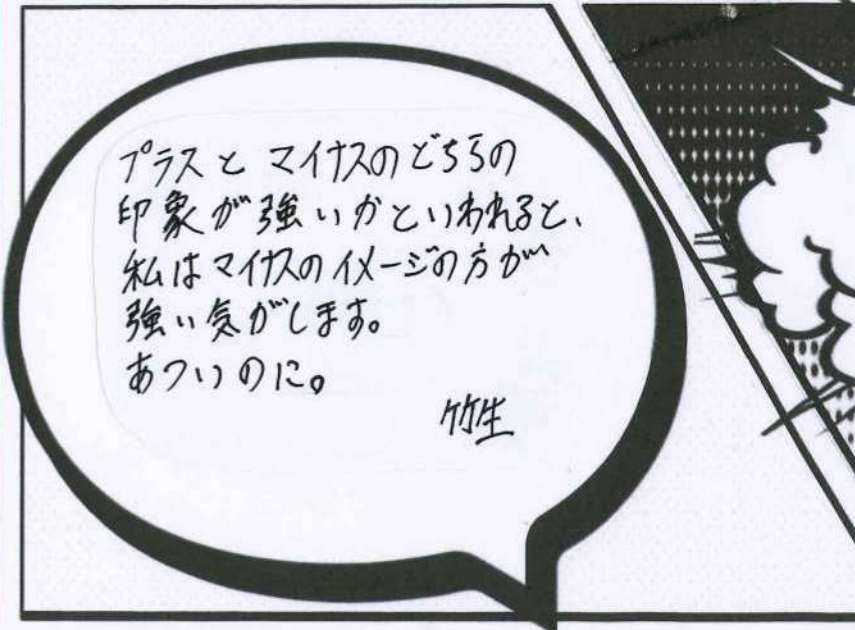 プラスとマイナスのどちらの
印象が強いかといわれると、
私はマイナスのイメージの方が
強い気がします。
あついのに。
竹生